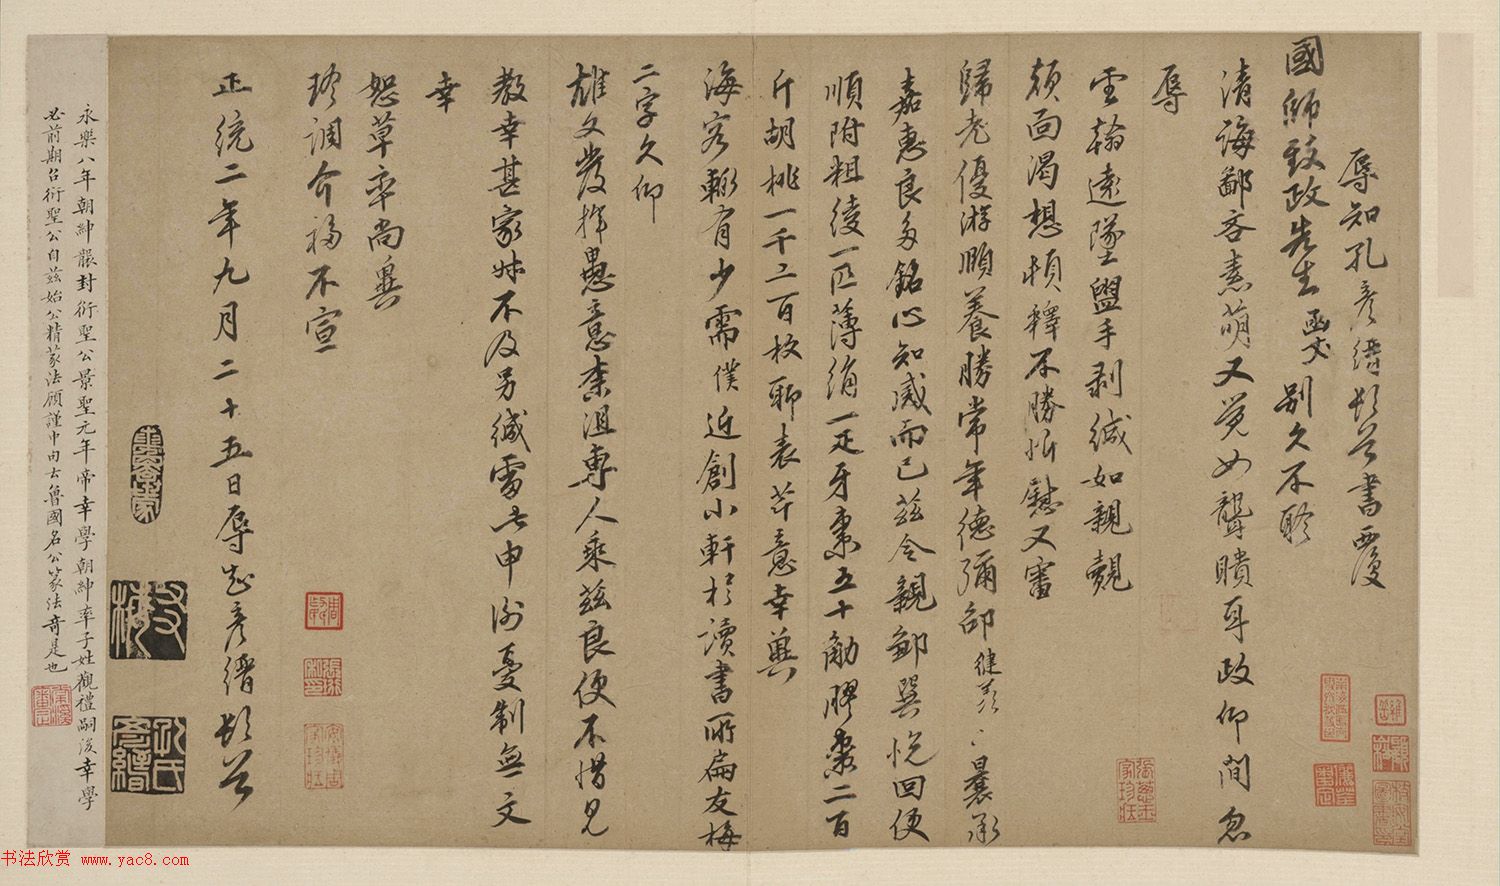 辱知孔彥縉頓首書覆
國師致政先生函丈別久不聆
清誨鄙吝素萌又覺如聾瞶耳政仰間忽
辱
雲翰遠墜盥手剥緘如親覿
顔面渴想頓釋不勝忻慰又審
歸老優游頤養勝常年德彌邵健羨〻曩承
嘉惠良多銘心知感而已茲令親鄒巽悅回便
順附粗綾一匹薄絹一疋牙棗五十觔膠棗二百
斤胡桃一千二百枚聊表芹意幸與
海容輙有少需僕近創小軒於讀書所扁友梅
二字久仰
雄文發揮愚意壺沮專人乘茲良便不惜見
教幸甚家妹不及另緘當此申
憂制無文
幸
恕草率尚冀
珍調介福不宣
正統二年九月二十五日辱知彥縉頓首
友梅
孔氏彥縉
永樂八年朝紳襲封衍聖公景聖元年帝幸學朝紳率子姓觀禮嗣後幸學
必前期召衍聖公自茲始公精篆法顧謹中句云魯國名公篆法奇是也
书法欣赏 www.yac8.com